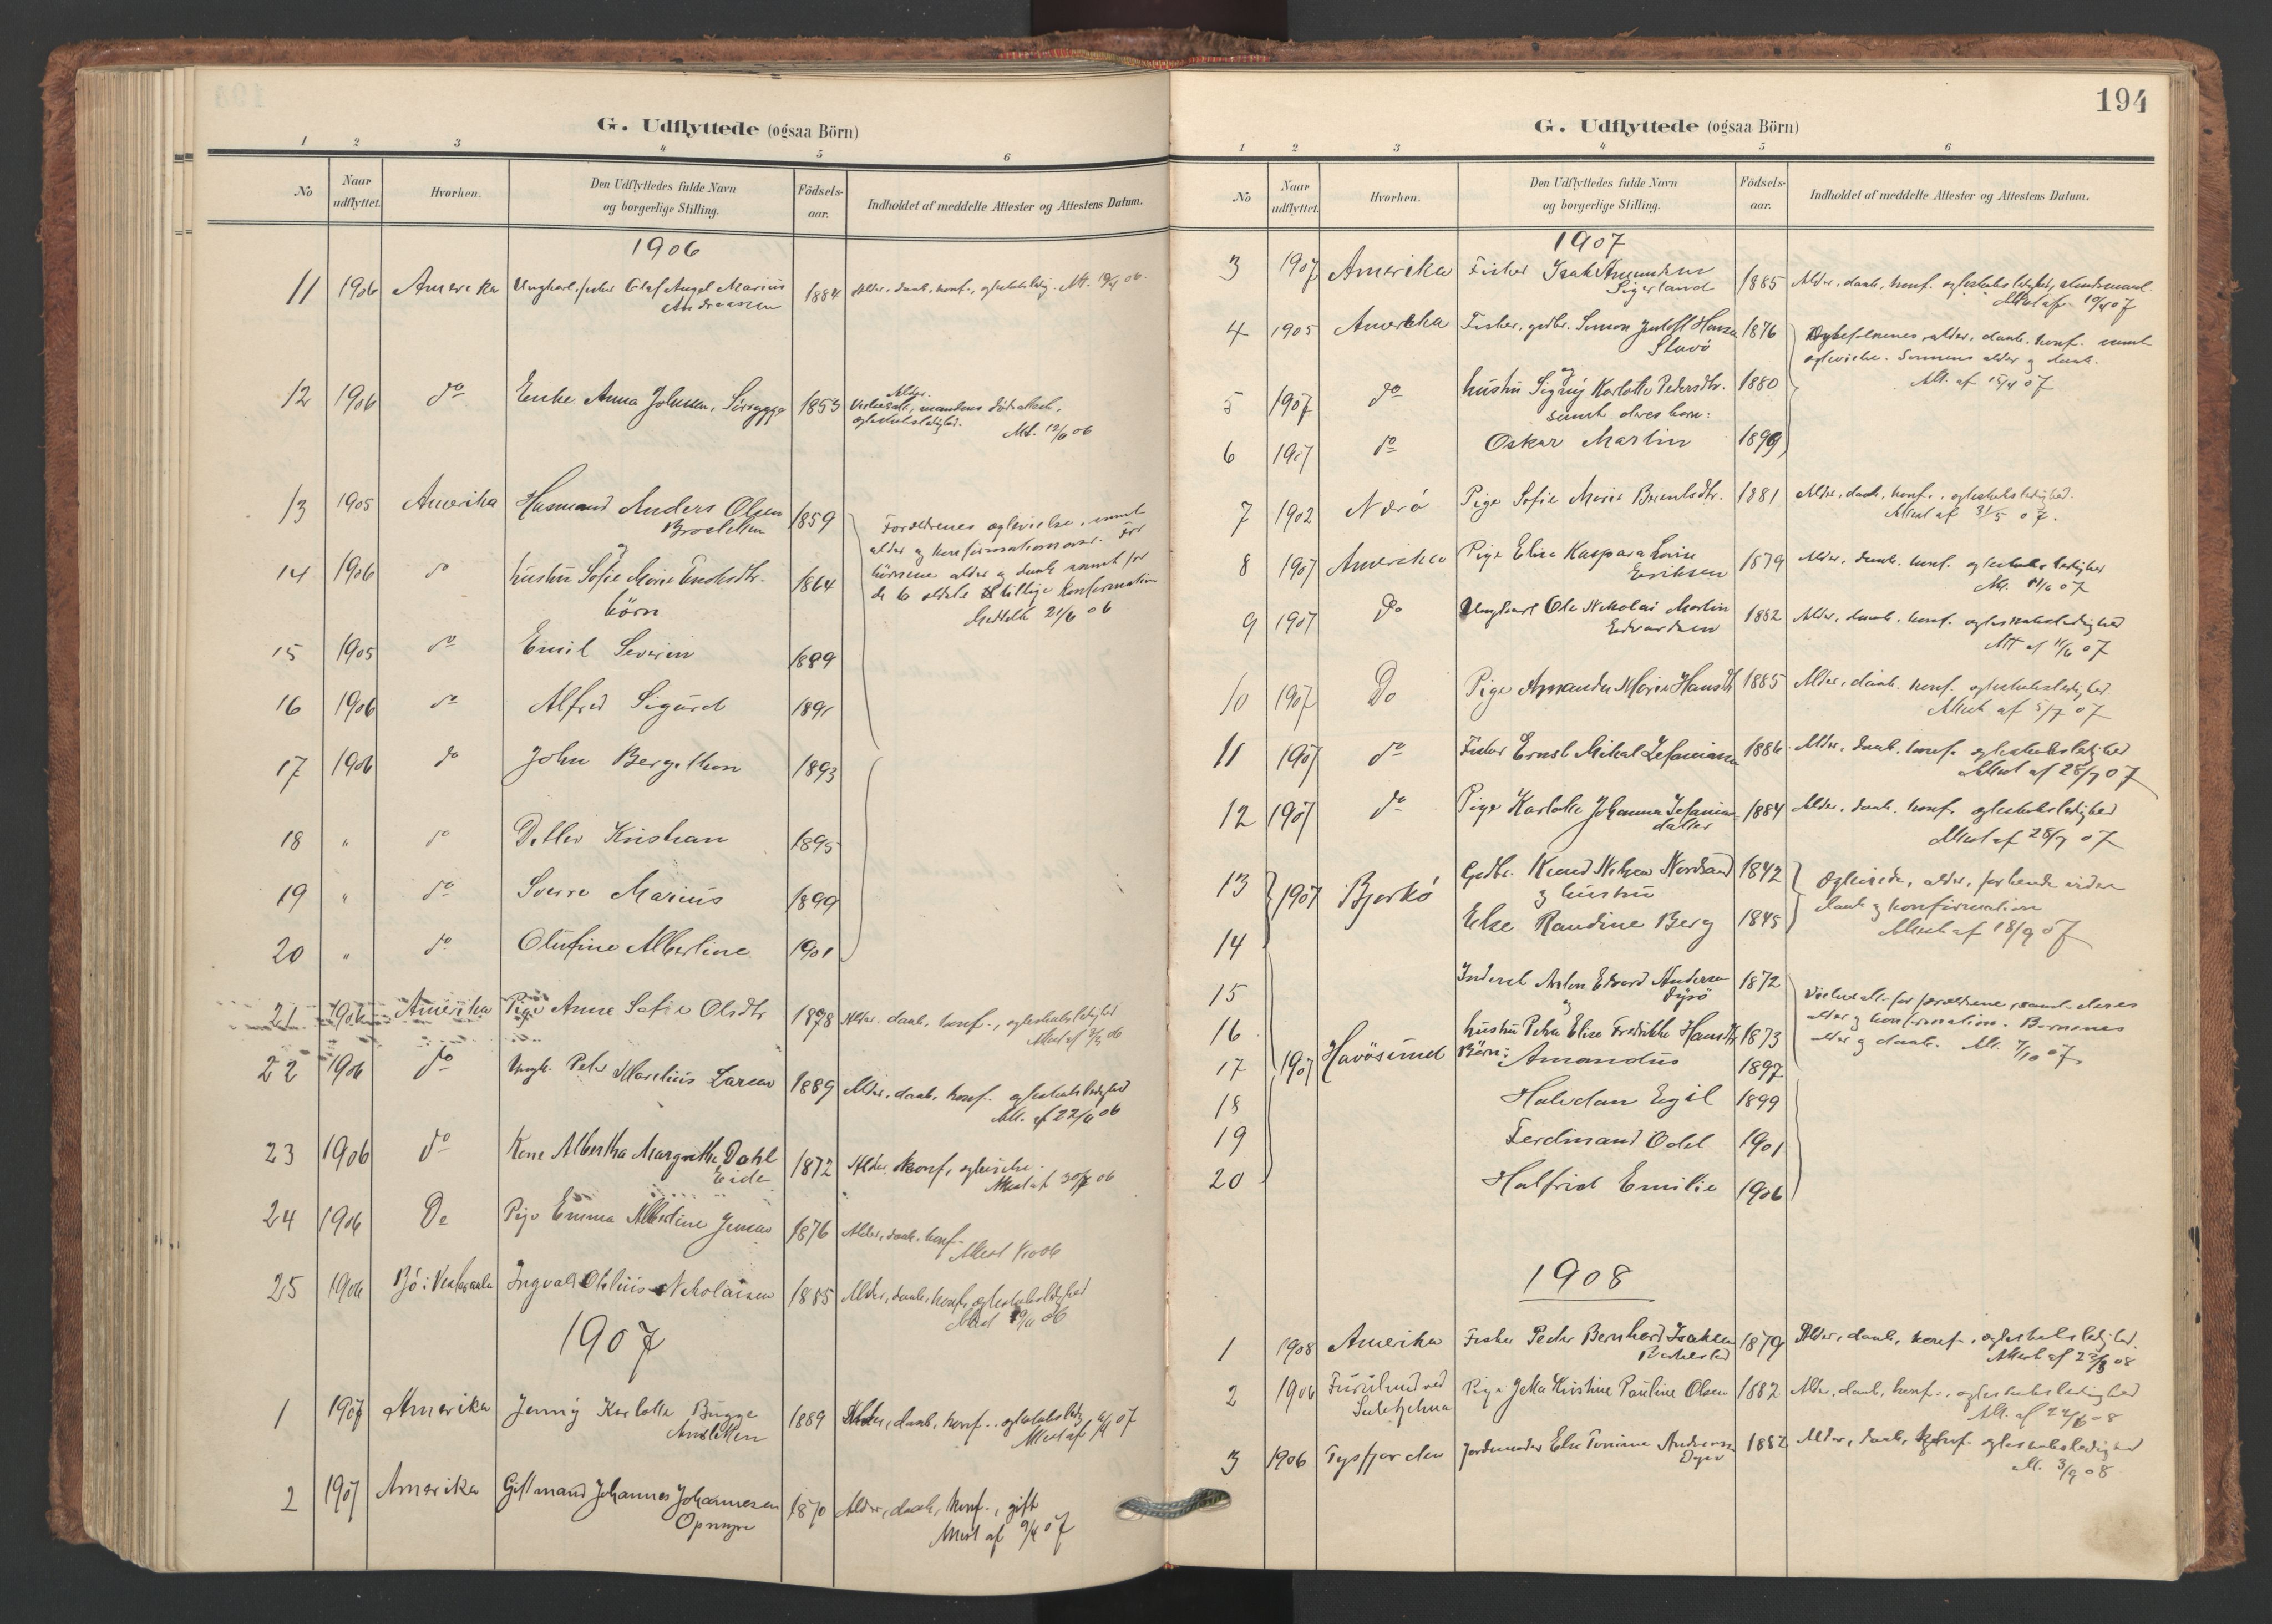 G. Udflyttede (ogsaa Börn)
1 2 3 4 5 6
No
Naar udflyttet.
Hvorhen.
Den Udflyttedes fulde Navn og borgerlige Stilling.
Födsels-aar.
Indholdet af meddelte Attester og Attestens Datum.
1906
11 1906 Amerika Ungkarl, fisker Olaf Angel Marius 1884 Alder, daab, konf., egteskabsledig. Att.
Andreassen
12 1906 do Enke Anna Johnsen, 1853 Alder.
mandens dödsattest,
egteskabsledighed. Att. 12/6 06
13 1905 Amerika Husmand Anders Olsen 1859 Forældrenes egtevielse, samt
alder og konfirmationer. For
og
14 1906 do hustru Sofie Marie 1864 börnene alder og daab samt for
de to ældste tillige Konfirmation
börn
Meddelt 21/6 06
15 1905 do Emil Severin 1889
16 1906 do Alfred Sigurd 1891
17 1906 do John Bergithon 1893
18 " do Detlev Kristian 1895
19 " do Sverre Marius 1899
20 " do Olufine Albertine 1901
21 1906 Amerika Pige Anne Sofie Olsdtr 1878 Alder, daab, konf., egteskabsledighed
Attest af
22 1906 do Ungk. Peter Marelius Larsen 1889 Alder, daab, konf. egteskabsledighed
Att. af 22/6 06
23 1906 do Kone Albertha Margrethe Dahl 1872 Alder, konf, egtevielse.
Eide Attest af 06
24 1906 Do Pige Emma Albertine Jensen 1876 Alder, daab, konf.
Attest
25 1906 Bö i Vesteraalen Ingvald Nikolaisen 1885 Alder, daab, konf, egteskabsledighed
Attest 06
1907
1 1907 Amerika Jenny Karlotte Bugge 1889 Alder, daab, konf. egteskabsledig.
Attest af 07
2 1907 Amerika Gift mand Johannes Johannesen 1870 Alder, daab, konf., gift
Attest af 9/4 07
194
G. Udflyttede (ogsaa Börn)
1 2 3 4 5 6
No
Naar udflyttet.
Hvorhen.
Den Udflyttedes fulde Navn og borgerlige Stilling.
Födsels-aar.
Indholdet af meddelte Attester og Attestens Datum.
1907
3 1907 Amerika Fisker Isak Amundsen 1885 Alder, daab, konf. egteskabsledighed,
Sigerland Attest af 10/4 07
4 1905 Amerika Fisker, grdbr. Simon Hansen 1876 Egtefolkenes, alder, daab, konf. samt
egtevielse. Sönnens alder og daab.
og
5 1907 do hustru Signy Karlotte Pedersdtr. 1880 Att. af 15/4 07
samt deres barn:
6 1907 do Oskar Martin 1899
7 1902 Nærö Pige Sofie Marie Berntsdtr. 1881 Alder, daab, konf., egteskabsledighed.
Attest af 31/5 07.
8 1907 Amerika Pige Elise Kaspara Lovise 1879 Alder, daab, konf. egteskabsledighed
Eriksen Att. 11/6 07
9 1907 Do Ungkarl Ole Nikolai Martin 1882 Alder, daab, konf. egteskabsledighed
Edvardsen Att af 11/6 07
10 1907 Do Pige Amanda Marie Hansdtr 1885 Alder, daab, konf. egteskabsledighed.
Attest af 5/7 07
11 1907 do Fisker Ernst Mikal Zefanias 1886 Alder, daab, konf. egteskabsledighed
Attest af 28/7 07
12 1907 do Pige Karlotte Johanna Zefanias- 1884 Alder, daab, konf. egteskabsledighed
datter Attest af 28/7 07
13 1907 Bjarkö Grdbr. Knud Nilsen Nordsand 1842 Egtevielse, alder, for hende videre
og hustru daab og konfirmation
14 Else Randine Berg 1845 Attest af 18/9 07
15 Inderst Anton Edvard Andersen 1872 Vielsesatt. for forældrene, samt deres
Dyrö
og alder og konfirmation. Börnenes
16 hustru Petra Elise Fredrikke Hansdtr 1873 alder og daab. Att. 7/10 07
17 1907 Havösund Börn: Amandus 1897
18 Halvdan Egil 1899
19 Ferdinand Odd 1901
20 Halfrid Emilie 1906
1908
1 1908 Amerika Fisker Peder Bernhard Isaksen 1879 Alder, daab, konf., egteskabsledighed.
Attest af 08
2 1906 ved Pige Jetta Kristine Pauline Olsen 1882 Alder, daab, konf., egteskabsledighed
Att. af
3 1906 Tysfjorden Jordemoder Else Andersen 1882 Alder, daab, konf. egteskabsledighed
Att. 3/9 08